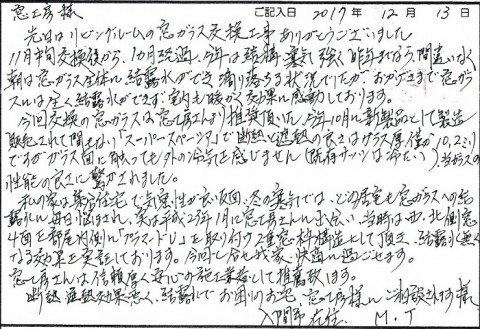 窓工房様
ご記入日 2017年 12月 13日
先日はリビングルームの窓ガラス交換工事ありがとうございました
11月中旬交換後から、1カ月経過、今年は結構寒気強く昨年までなら、間違いなく
朝は窓ガラス全体に結露水ができ滴り落ちる状況でしたが、おかげさまで窓ガ
ラスには全く結露水ができず、室内も暖かく効果に感動しております。
今回交換の窓ガラスは窓工房さんより推奨頂いた、今年10月に新製品として製造
販売されて間もない「スーパースペーシア」で断熱と遮熱の良さはガラス厚僅か10.2ミリ
ですがガラス面に触っても外の冷気を感じません(既存サッシは冷たい)、当ガラスの
性能の良さに驚かされました。
私の家は 住宅で気密性が良い反面、冬の寒気では、どの居室も窓ガラスへの結
露に毎日悩まされ、実は平成25年1月に窓工房さんに出会い、当時は西、北側窓
4面を部屋内側に「プラマードU」を取り付け2重窓枠構造として頂き、結露水無く
なる効果を実証しております。今回で合せ我家、快適に過ごせます。
窓工房さんは信頼厚く安心の施工業者として推薦致します。
断熱、遮熱効果悪く、結露水でお困りのお宅、窓工房様にご相談されます様
入間市在住 M・T